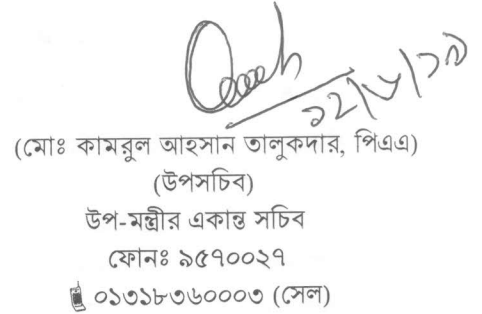 ১২/৮/১৯
(মোঃ কামরুল আহসান তালুকদার, পিএএ)
(উপসচিব)
উপ-মন্ত্রীর একান্ত সচিব
ফোনঃ ৯৫৭০০২৭
০১৩১৮৩৬০০০৩ (সেল)